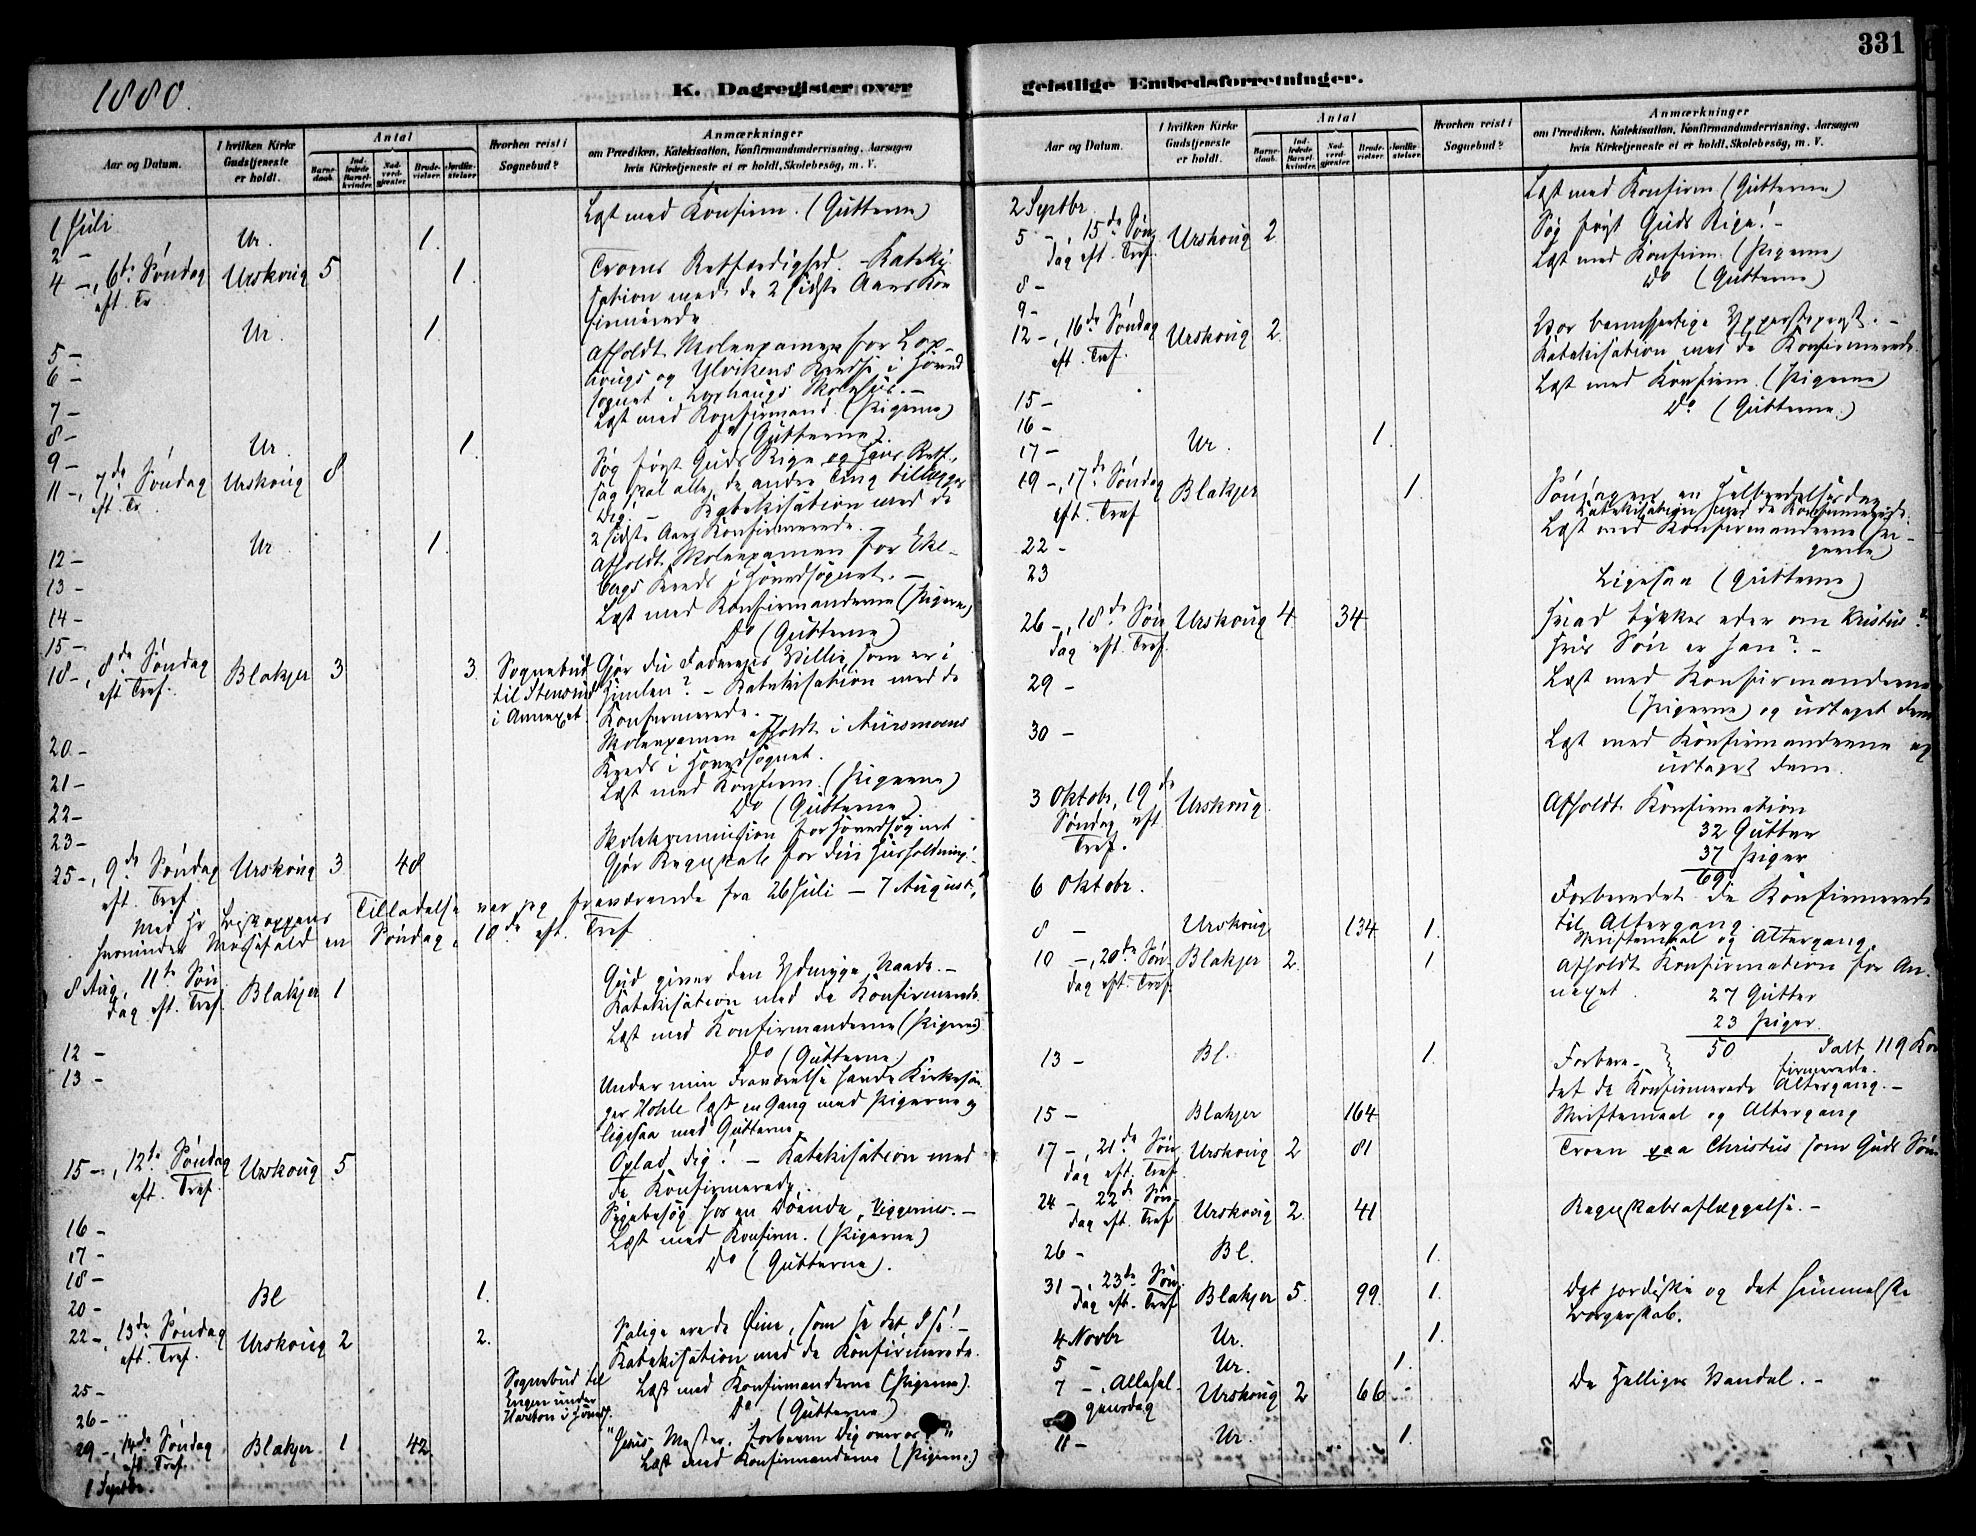 331
1880.
K. Dagregister over
geistlige Embedsforretninger.
Aar og Datum.
I hvilken Kirke Gudstjeneste er holdt.
Antal
Barne-daab.
Ind-ledede Barsel-kvinder.
Nad-verd-gjester
Brude-vielser.
Jordfæ-stelser.
Hvorhen reist i Sognebud?
Anmærkninger
om Prædiken, Katekisation, Konfirmandundervisning, Aarsagen
hvis Kirketjeneste ei er holdt, Skolebesög, m. V.
1 Juli Læst med Konfirm. (Gutterne)
2 – Ur. 1.
4 –, 6te Søndag Urskoug 5 1. Troens Retfærdighed. – Kateki-
eft. Tr sation med de 2 sidste Aars Kon
firmerede
5 – Ur. 1. Afholdt Skoleexamen for Lox-
6 – krugs og Ulvikens Kreds i Hoved
sognet i Skolehus. –
7 – Læst med Konfirmand. (Pigerne)
8 – Do (Gutterne).
9 – Ur. 1. Søg først Guds Rige og Hans Retf.,
11 –, 7de Søndag Urskoug 8 saa skal alle de andre Ting tillægges
eft. Tr Dig! – Katekisation med de
2 sidste Aars Konfirmerede. –
12 – Ur 1. Afholdt Skoleexamen for Eke-
13 – bergs Kreds i Hovedsognet. –
14 – Læst med Konfirmanderne (Pigerne)
15 – Do (Gutterne)
18 –, 8de Søndag Blakjer 3 3. Sognebud Gjør du Faderens Villie, som er i
eft. Tref. til Stensrud Himlen? – Katekisation med de
i Annexet. Konfirmerede. –
20 – Skoleexamen afholdt i Aursmoens
Kreds i Hovedsognet.
21 – Læst med Konfirm. (Pigerne)
22 – Do (Gutterne)
23 – Skolekommission for Hovedsognet
25 –, 9de Søndag Urskoug 3 48 Gjør Regnskab for din Husholdning! –
eft. Tref.
Med Hr Biskoppens Tilladelse var jeg fraværende fra 26 Juli – 7 August,
herunder Messefald en Søndag, 10de eft. Tref
8 Aug, 11te Søn Blakjer 1 Gud giver den Ydmyge Naade. –
dag eft. Tref. Katekisation med de Konfirmerede.
12 – Læst med Konfirmanderne (Pigerne)
13 – Do (Gutterne)
Under min Fraværelse havde Kirkesan
ger Hohle læst en Gang med Pigerne og
ligesaa med Gutterne.
15 –, 12te Søndag Urskoug 5 Oplad dig! – Katekisation med
eft. Tref de Konfirmerede.
16 – Sygebesøg hos en Døende, –
17 – Læst med Konfirm. (Pigerne)
18 – Do (Gutterne).
20 – Bl 1.
22 –, 13de Søndag Urskoug 2 2. Salige ere de Øine, som se det I se! –
eft. Tref. Katekisation med de Konfirmerede.
25 – Sognebud til Læst med Konfirmanderne (Pigerne).
26 – Engen under Do (Gutterne)
29 –, 14de Søndag Blakjer 1 42 "Jesus Mester, forbarm Dig over os!"
eft. Tref
1 Septbr. Læst med Konfirmanderne (Pigerne)
Aar og Datum.
I hvilken Kirke Gudstjeneste er holdt.
Antal
Barne-daab.
Ind-ledede Barsel-kvinder.
Nad-verd-gjester
Brude-vielser.
Jordfæ-stelser.
Hvorhen reist i Sognebud?
Anmærkninger
om Prædiken, Katekisation, Konfirmandundervisning, Aarsagen
hvis Kirketjeneste ei er holdt, Skolebesög, m. V.
2 Septbr. Læst med Konfirm (Gutterne)
5 –, 15de Søn Urskoug 2 Søg først Guds Rige! –
dag eft. Tref.
8 – Læst med Konfirm. (Pigerne)
9 – Do (Gutterne)
12 –, 16de Søndag Urskoug 2 Vor barmhjertige Ypperstepræst. –
eft. Tref. Katekisation med de Konfirmerede.
15 – Læst med Konfirm. (Pigerne)
16 – Do (Gutterne.)
17 – Ur. 1.
19 –, 17de Søndag Blakjer 1. Søndagen en Helbredelsesdag
eft. Tref Katekisation med de Konfirmerede.
22 – Læst med Konfirmanderne (Pi-
gerne)
23 Ligesaa (Gutterne)
26 –, 18de Søn Urskoug 4 34 Hvad tykkes eder om Kristus?
dag eft. Tref. Hvis Søn er han? –
29 – Læst med Konfirmanderne
(Pigerne) og udtaget dem
30 – Læst med Konfirmanderne og
udtaget dem.
3 Oktobr, 19de Urskoug Afholdt Konfirmation
Søndag eft 32 Gutter
Tref. 37 Piger
69
6 Oktobr. Forberedet de Konfirmerede
til Altergang
8 – Urskoug 134 1. Skriftemaal og Altergang.
10 –, 20de Søn- Blakjer 2. 1 Afholdt Konfirmation for An-
dag eft. Tref. nexet. 27 Gutter
23 Piger
50 Ialt 119 Kon
firmerede.
13 – Bl. 1. Forbere-
det de Konfirmerede Altergang. –
15 – Blakjer 164 Skriftemaal og Altergang
17 –, 21de Søn Urskoug 2 81 Troen paa Christus som Guds Søn
dag eft. Tref
24 – 22de Søn- Urskoug 2. 41 Regnskabsaflæggelse. –
dag eft. Tref
26 – Bl. 1.
31 –, 23de Søn. Blakjer 5. 99. 1. Det jordiske og det himmelske
dag eft. Tref Borgerskab.
4 Novbr Ur. 1.
5 – Ur. 1.
7 –, Allehel- Urskoug 2 66 De Helliges Vandel. –
gensdag
11 – Ur. 1.